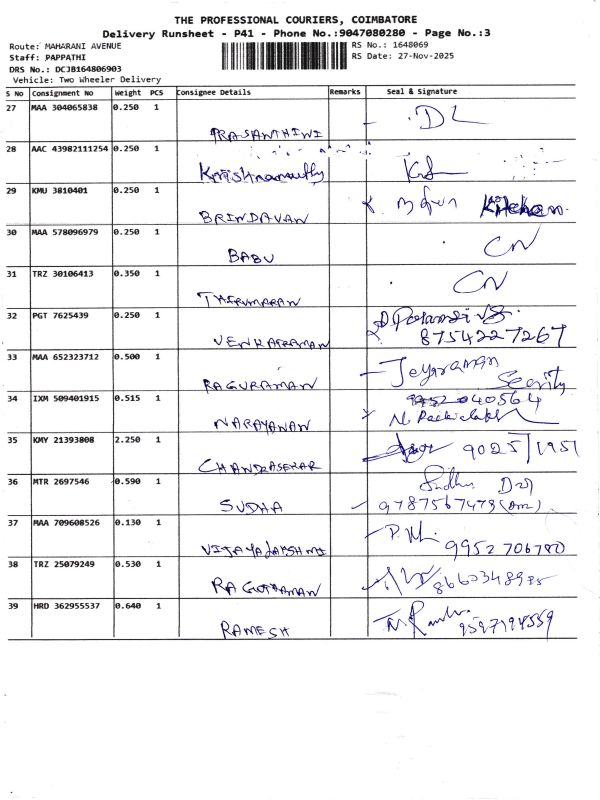 THE PROFESSIONAL COURIERS, COIMBATORE
Delivery Runsheet - P41 - Phone No.:9047080280 - Page No.:3
Route: MAHARANI AVENUE RS No.: 1648069
Staff: PAPPATHI RS Date: 27-Nov-2025
DRS No.: DCJB164806903
Vehicle: Two Wheeler Delivery
S No Consignment No Weight PCS Consignee Details Remarks Seal & Signature
27 MAA 304065838 0.250 1
PRASANTHINI DL
28 AAC 43982111254 0.250 1
Krishnamurthy
29 KMU 3810401 0.250 1
BRINDAVAN Kitchen.
30 MAA 578096979 0.250 1
BABU CN
31 TRZ 30106413 0.350 1
THIRUMARAN CN
32 PGT 7625439 0.250 1
VENKATRAMAN 8754227267
33 MAA 652323712 0.500 1
RAGURAMAN Jeyaraman
34 IXM 509401915 0.515 1
NARAYANAN
35 KMY 21393808 2.250 1
CHANDRASEKAR
36 MTR 2697546 0.590 1
SUDHA Sudha
37 MAA 709608526 0.130 1
VIJAYALAKSHMI 9952706780
38 TRZ 25079249 0.530 1
RAGURAMAN
39 HRD 362955537 0.640 1
RAMESH